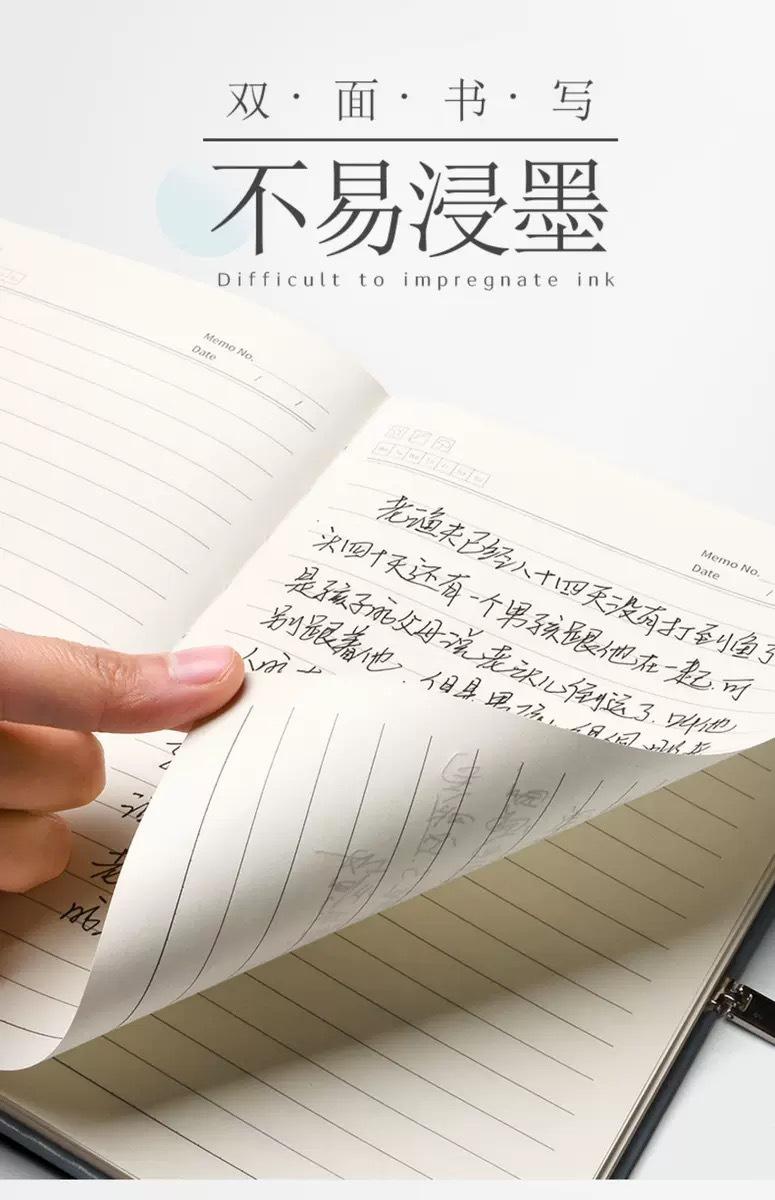 双·面·书·写
不易浸墨
Difficult to impregnate ink
Memo No.
Date / /
Memo No.
Date /
老渔夫已经八十四天没有打到鱼了
次四十天还有一个男孩跟他在一起.可
是孩子的父母说老头儿倒运了.叫他
别跟着他.但是男孩